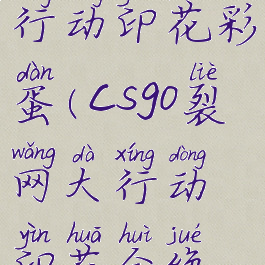 行动印花彩
dàn liè
蛋(CS90裂
wǎng dà xíng dòng
网大行动
yìn huā huì jué